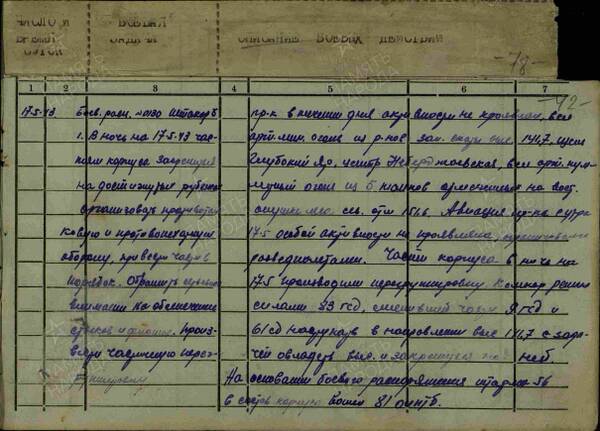 ЧИСЛО И ВРЕМЯ СУТОК
БОЕВАЯ ЗАДАЧА
ОПИСАНИЕ БОЕВЫХ ДЕЙСТВИЙ
78
42
1 2 3 4 5 6 7
17.5.43
Боев. расп. №0130
1. В ночь на 17.5.43 час-
тями корпуса закрепиться
на достигнутых рубежах
организовать противотан-
ковую и противопехотную
оборону, привести части в
порядок. Обратить
внимание на обеспечение
стыков и флангов. Произ-
вести частичную перег-
руппировку
пр-к в течении дня активности не проявлял, вел
арт. мин. огонь из р-нов зап. скаты выс. 141,7,
Глубокий Яр, центр Неберджаевская, вел арт.
огонь из
опушки лес. св. отм 151,6. Авиация пр-ка с утра
17.5 особой активности не проявляла,
разведполетами. Части корпуса в ночь на
17.5 производили перегруппировку. Комкор решил
силами 33 гсд, сменившей части 9 гсд и
61 сд нанести удар в направлении выс 141,7 с зада-
чей овладеть выс. и закрепиться на ней
На основании боевого распоряжения штарма 56
в состав корпуса вошел 81 оиптб.
ПАМЯТЬ НАРОДА